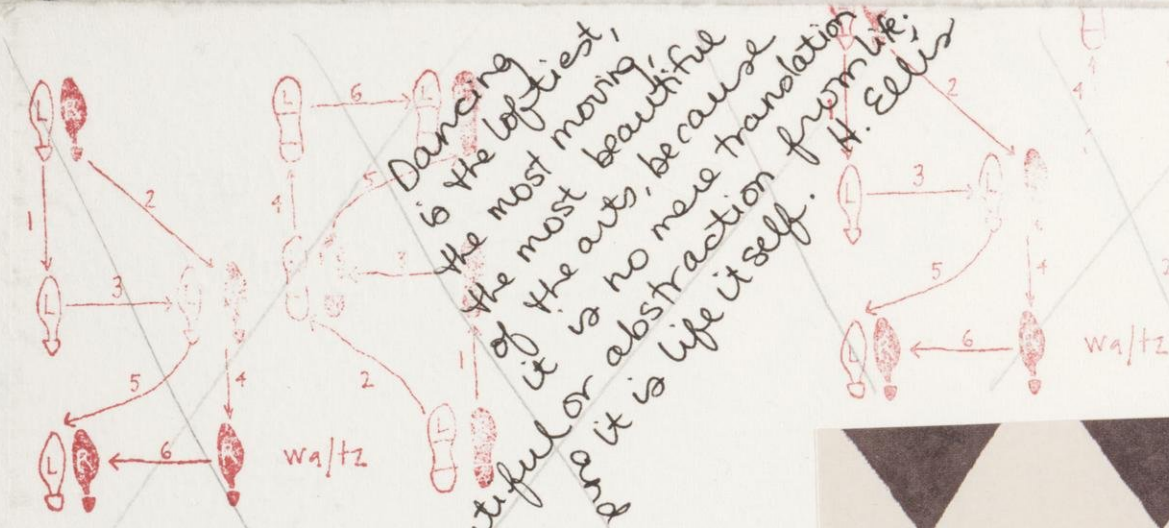 L R
1
2
L
3
5
4
L R
6
waltz
L
6
L
4
5
3
2
1
L
Dancing
is the loftiest,
the most moving,
the most beautiful
of the arts, because
it is no mere translation
or abstraction from life;
it is life itself. H. Ellis
and
2
L
3
L
5
4
L R
6
waltz
4